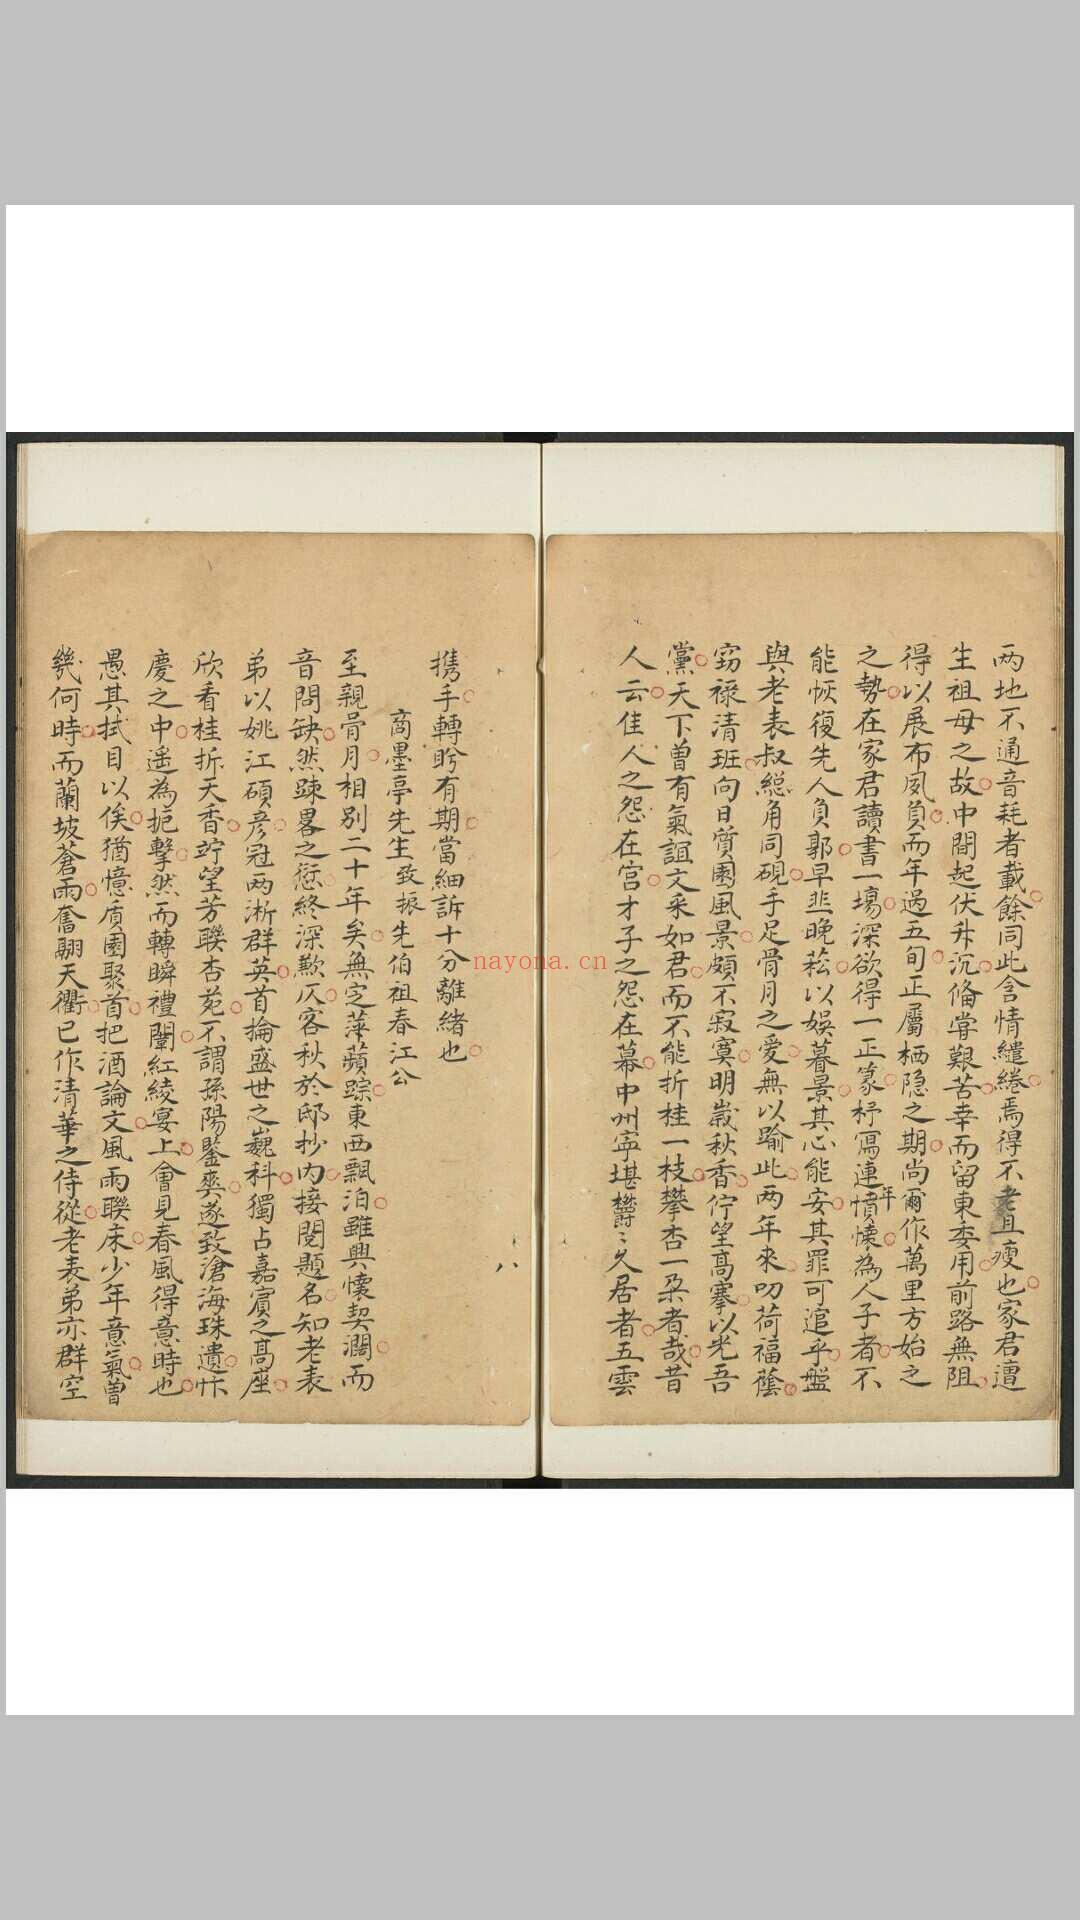 两地不通音耗者載餘同此含情繾綣焉得不老且瘦也家君邅
生祖母之故中間起伏升沉俻甞艱苦幸而留東委用前路無阻
得以展布夙負而年過五旬正屬栖隐之期尚爾作萬里方始之
之勢在家君讀書一場深欲得一正篆杼寫連年憤懐為人子者不
能恢復先人負郭早韭晚菘以娛暮景其心能安其罪可逭乎盤
與老表叔緫角同硯手足骨月之愛無以踰此两年來叨荷福蔭
窃禄清班向日質園風景頗不寂寞明嵗秋香佇望髙搴以光吾
黨天下曽有氣誼文采如君而不能折桂一枝攀杏一朶者哉昔
人云佳人之怨在宫才子之怨在幕中州寜堪欝〻久居者五雲
携手轉盻有期當細訴十分離緒也
商墨亭先生致振先伯祖春江公
至親骨月相别二十年矣無定萍蘋踪東西飄泊雖興懷契濶而
音問缺然踈畧之愆終深歉仄客秋於邸抄内接閱題名知老表
弟以姚江碩彦冠两淅群英首掄盛世之巍科獨占嘉賔之髙座
欣看桂折天香竚望芳聯杏苑不謂孫陽鑒爽遂致滄海珠遺忭
慶之中遥為扼擊然而轉瞬禮闈紅綾宴上會見春風得意時也
愚其拭目以俟猶憶质園聚首把酒論文風雨聯床少年意氣曽
幾何時而蘭坡蒼雨奮翮天衢已作清華之侍從老表弟亦群空
八
nayona.cn